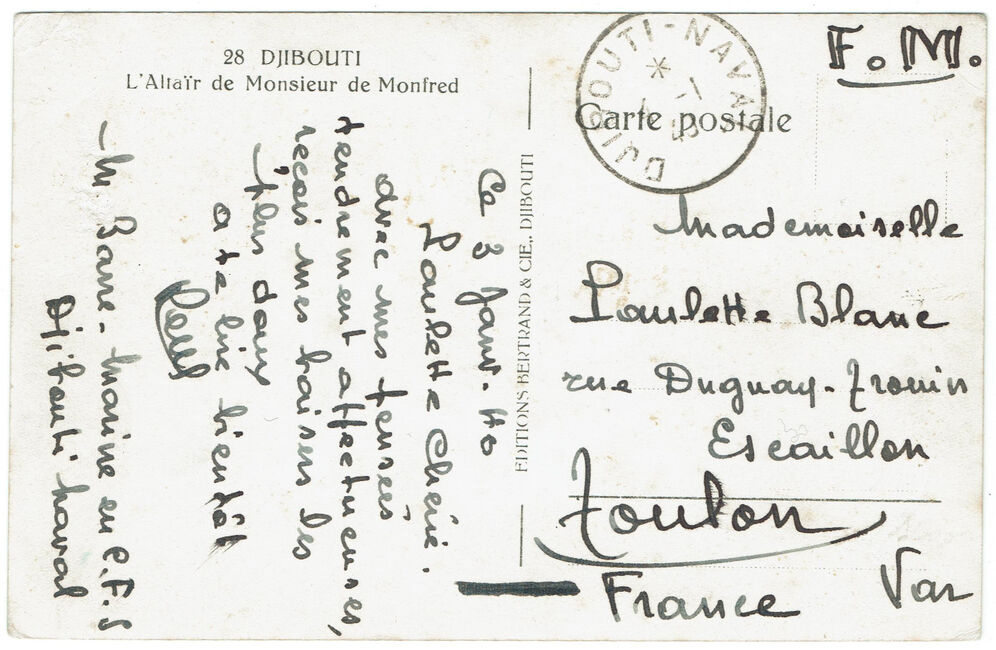 28 DJIBOUTI
L'Altaïr de Monsieur de Monfred
Ce 3 Janv. 40
Paulette Chérie.
avec mes pensées
tendrement affectueuses,
reçois mes baisers les
plus doux
a te lire bientôt
Paul
M. Barre - Marine en C.F.S
Djibouti naval
EDITIONS BERTRAND & CIE., DJIBOUTI
DJIBOUTI-NAVAL
F.M.
Carte postale
Mademoiselle
Paulette Blanc
rue Duguay-Trouin
Escaillon
Toulon
Var
France